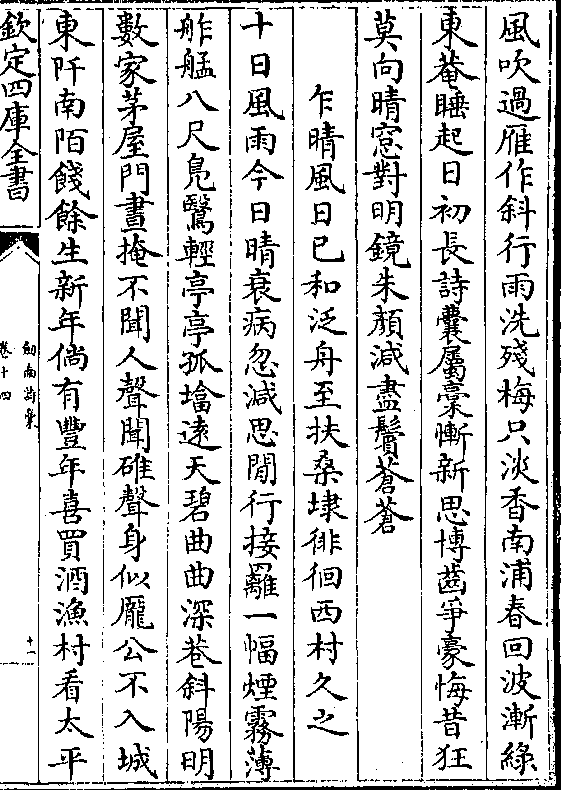 風吹過雁作斜行雨洗殘梅只淡香南浦春回波漸綠
東菴睡起日初長詩囊屬稾慚新思博齒爭豪悔昔狂
莫向晴窓對明鏡朱顔減盡鬢蒼蒼
乍晴風日已和泛舟至扶桑埭徘徊西村久之
十日風雨今日晴衰病忽減思閒行接䍦一幅煙霧薄
舴艋八尺鳬鷖輕亭亭孤墖遠天碧曲曲深巷斜陽明
數家茅屋門晝掩不聞人聲聞碓聲身似龎公不入城
東阡南陌餞餘生新年倘有豐年喜買酒漁村看太平
欽定四庫全書
劎南詩稾
卷十四
十一